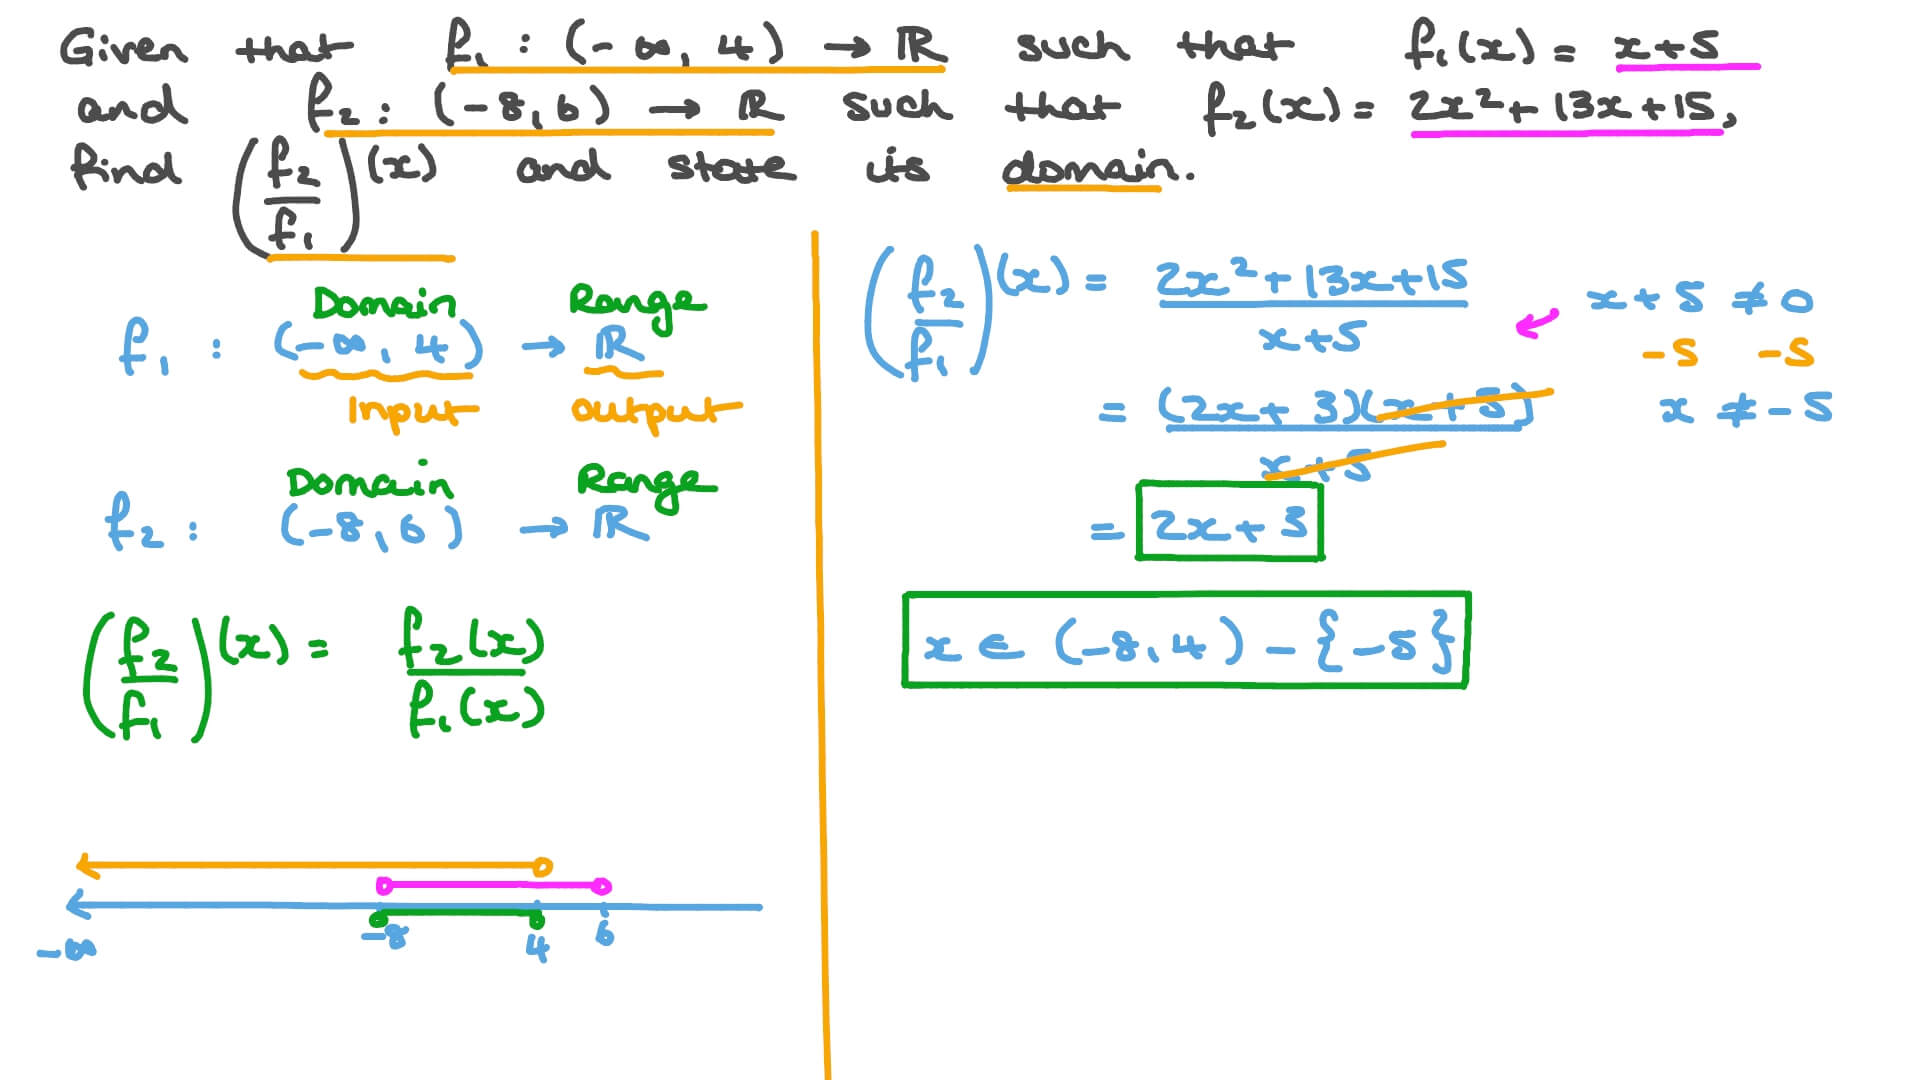 Given that f₁ : (-∞, 4) → ℝ such that f₁(x) = x+5
and f₂ : (-8, 6) → ℝ such that f₂(x) = 2x²+13x+15,
find (f₂/f₁)(x) and state its domain.
Domain Range
f₁ : (-∞, 4) → ℝ
Input Output
Domain Range
f₂ : (-8, 6) → ℝ
(f₂/f₁)(x) = f₂(x)/f₁(x)
-∞ -8 4 6
(f₂/f₁)(x) = (2x²+13x+15)/(x+5)
= (2x+3)(x+5)/(x+5)
= 2x+3
x ∈ (-8, 4) - {-5}
x+5 ≠ 0
-5 -5
x ≠ -5